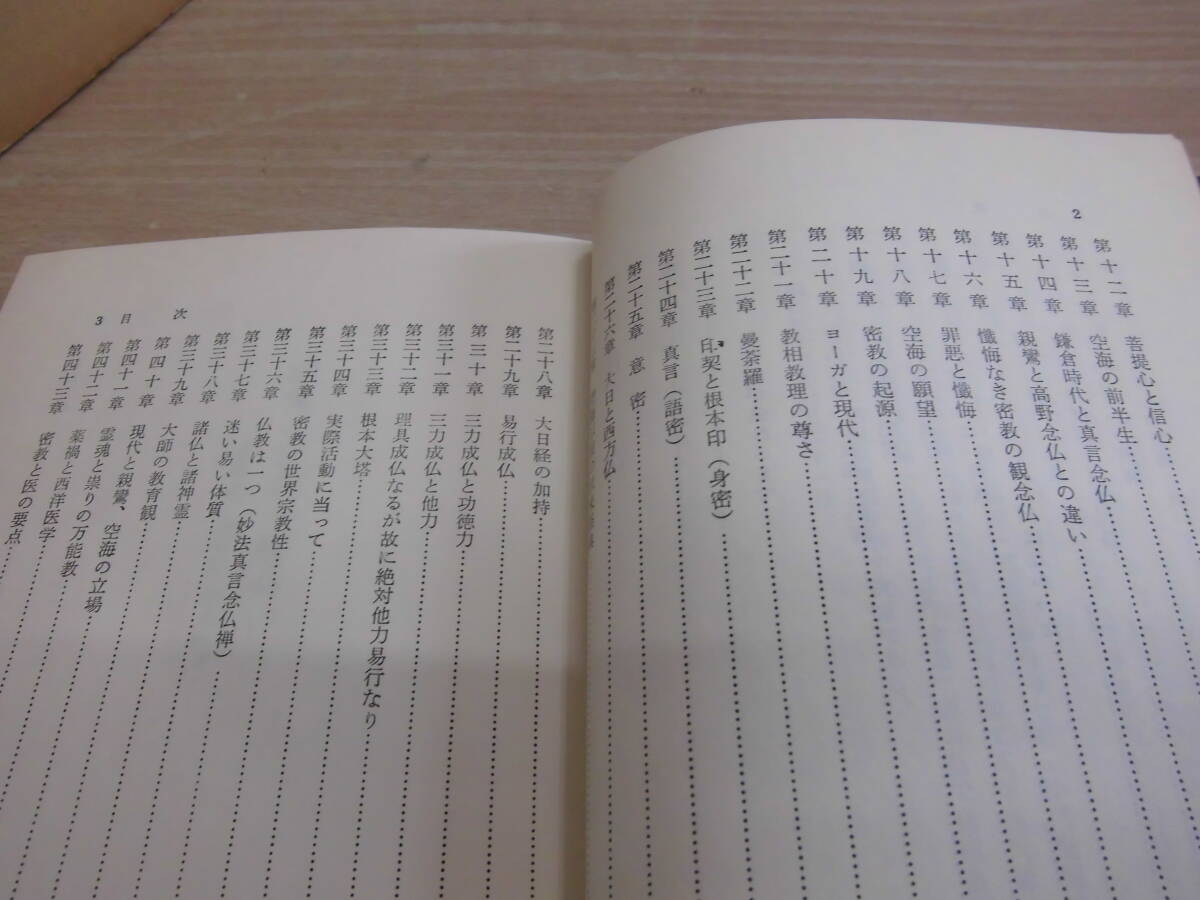 2
第十二章 菩提心と信心
第十三章 空海の前半生
第十四章 鎌倉時代と真言念仏
第十五章 親鸞と高野念仏との違い
第十六章 懺悔なき密教の観念仏
第十七章 罪悪と懺悔
第十八章 空海の願望
第十九章 密教の起源
第二十章 ヨーガと現代
第二十一章 教相教理の尊さ
第二十二章 曼荼羅
第二十三章 印契と根本印（身密）
第二十四章 真言（語密）
第二十五章 意密
第二十六章 大日と西方仏
第二十八章 大日経の加持
第二十九章 易行成仏
第三十章 三力成仏と功徳力
第三十一章 三力成仏と他力
第三十二章 理具成仏なるが故に絶対他力易行なり
第三十三章 根本大塔
第三十四章 実際活動に当って
第三十五章 密教の世界宗教性
第三十六章 仏教は一つ（妙法真言念仏禅）
第三十七章 迷い易い体質
第三十八章 諸仏と諸神霊
第三十九章 大師の教育観
第四十章 現代と親鸞、空海の立場
第四十一章 霊魂と祟りの万能教
第四十二章 薬禍と西洋医学
第四十三章 密教と医の要点
3 目次